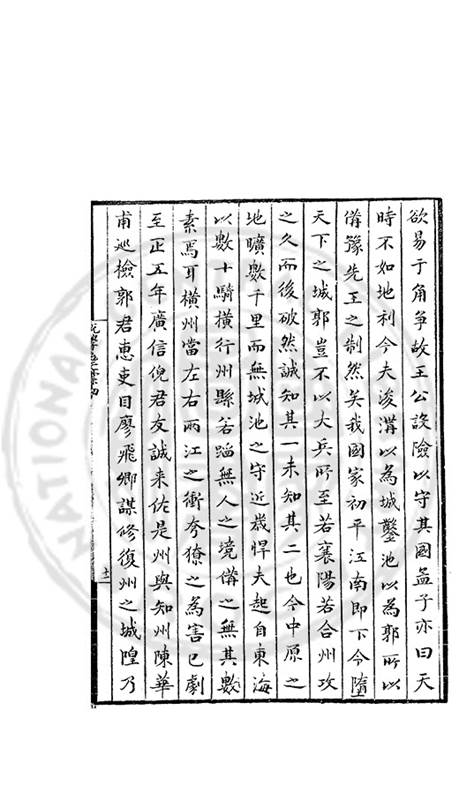 欲易于角争故王公設險以守其國孟子亦曰天
時不如地利今夫浚溝以為城鑿池以為郭所以
備豫先王之制然矣我國家初平江南即下令墮
天下之城郭豈不以大兵所至若襄陽若合州攻
之久而後破然誠知其一未知其二也今中原之
地曠數千里而無城池之守近歲悍夫起自東海
以數十騎橫行州縣若蹈無人之境備之無其數
素焉耳橫州當左右兩江之衝夸獠之為害已劇
至正五年廣信倪君友誠来佐是州與知州陳華
甫巡檢郭君惠吏目廖飛卿謀修復州之城隍乃
十一
NATIONAL